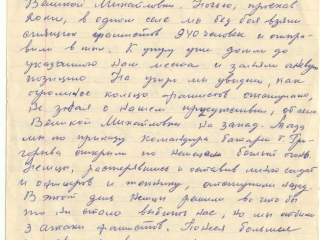 Великой Михайловки. Ночью, проехав
в одном селе мы без боя взяли
спящих фашистов 940 человек и отпра-
вили в тыл. К утру уже дошли до
указанного нам места и заняли огневую
позицию. На утро мы увидели, как
огромное кольцо фашистов отступало,
не зная о нашем присутствии, от села
Великой Михайловки на запад. Тогда
мы по приказу командира батареи т. Гри-
горьева открыли по немцам большой огонь.
Немцы, растерявшись и оставив много солдат
и офицеров и технику, отступили назад.
В этой день немцы решили во что бы
то ни стало выбить нас, но мы отбили
3 атаки фашистов. Понеся большие